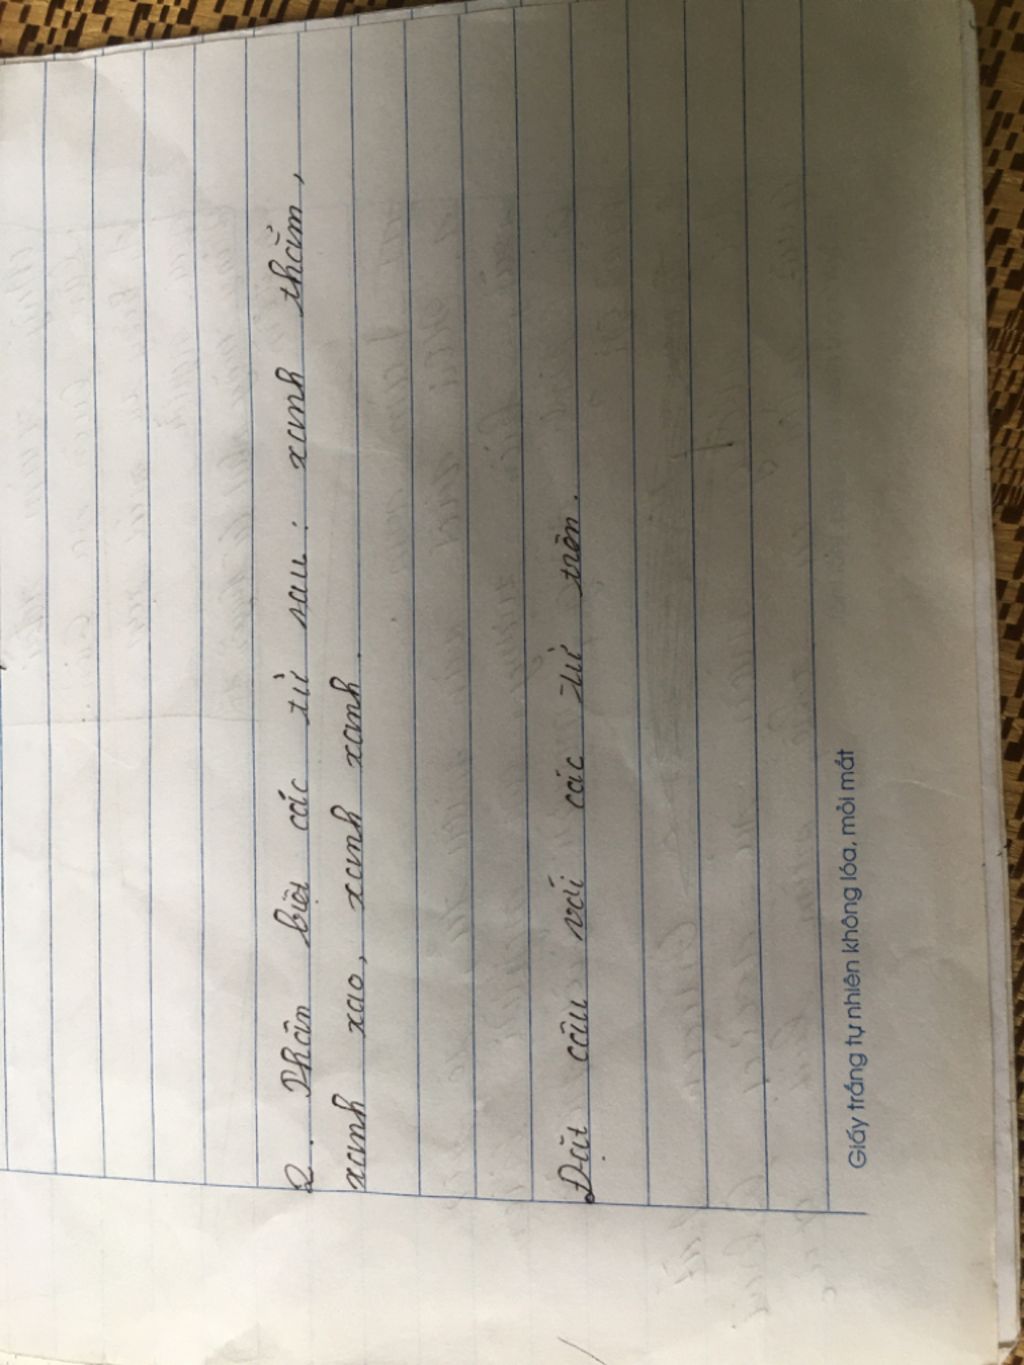 2. Phân biệt các từ sau : xanh thắm,
xanh xao, xanh xanh.
Đặt câu với các từ trên.
Giấy trắng tự nhiên không lóa, mỏi mắt